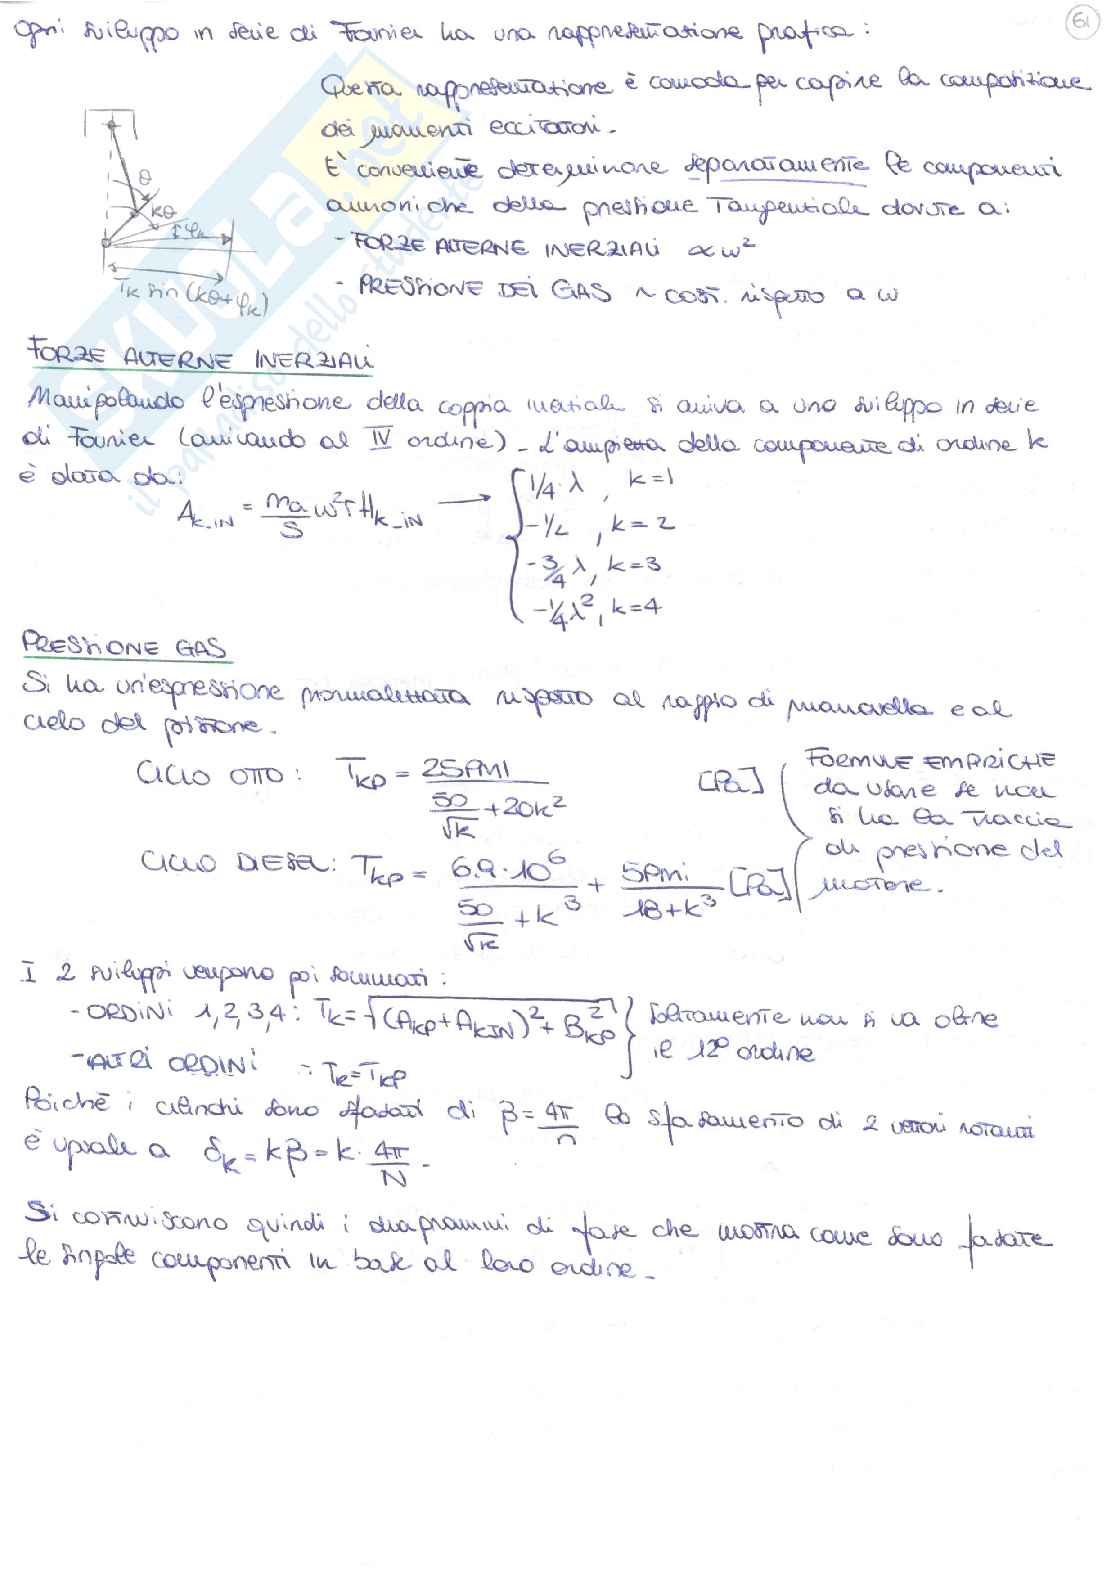 61
Ogni sviluppo in serie di Fourier ha una rappresentazione grafica:
Questa rappresentazione è comoda per capire la composizione
dei momenti eccitatori.
E' conveniente determinare separatamente le componenti
armoniche della pressione tangenziale dovute a:
- FORZE ALTERNE INERZIALI ∝ ω²
- PRESSIONE DEI GAS ~ cost. rispetto a ω
θ
kθ
φk
Tk sin(kθ+φk)
FORZE ALTERNE INERZIALI
Manipolando l'espressione della coppia inerziale si arriva a uno sviluppo in serie
di Fourier (arrivando al IV ordine). L'ampiezza della componente di ordine k
è data da:
A_{k-IN} = ma/S ω² r H_{k-IN} → { 1/4 λ, k=1
-1/2, k=2
-3/4 λ, k=3
-1/4 λ², k=4
PRESSIONE GAS
Si ha un'espressione normalizzata rispetto al raggio di manovella e al
cielo del pistone.
CICLO OTTO: T_{kp} = 25PMI / (50/√k + 20k²) [Pa]
CICLO DIESEL: T_{kp} = 6.9·10⁶ / (50/√k + k³) + 5Pmi / (18+k³) [Pa]
FORMULE EMPIRICHE
da usare se non
si ha la traccia
di pressione del
motore.
I 2 sviluppi vengono poi sommati:
- ORDINI 1,2,3,4: Tk = √((A_{KP}+A_{KIN})² + B²_{KP}) } Solitamente non si va oltre
- ALTRI ORDINI : Tk = T_{KP} il 12° ordine
Poiché i cilindri sono sfasati di β = 4π/n lo sfasamento di 2 vettori rotanti
è uguale a δk = kβ = k·4π/N.
Si costruiscono quindi i diagrammi di fase che mostra come sono fasate
le singole componenti in base al loro ordine.
SKUOLA.net
il paradiso dello studente